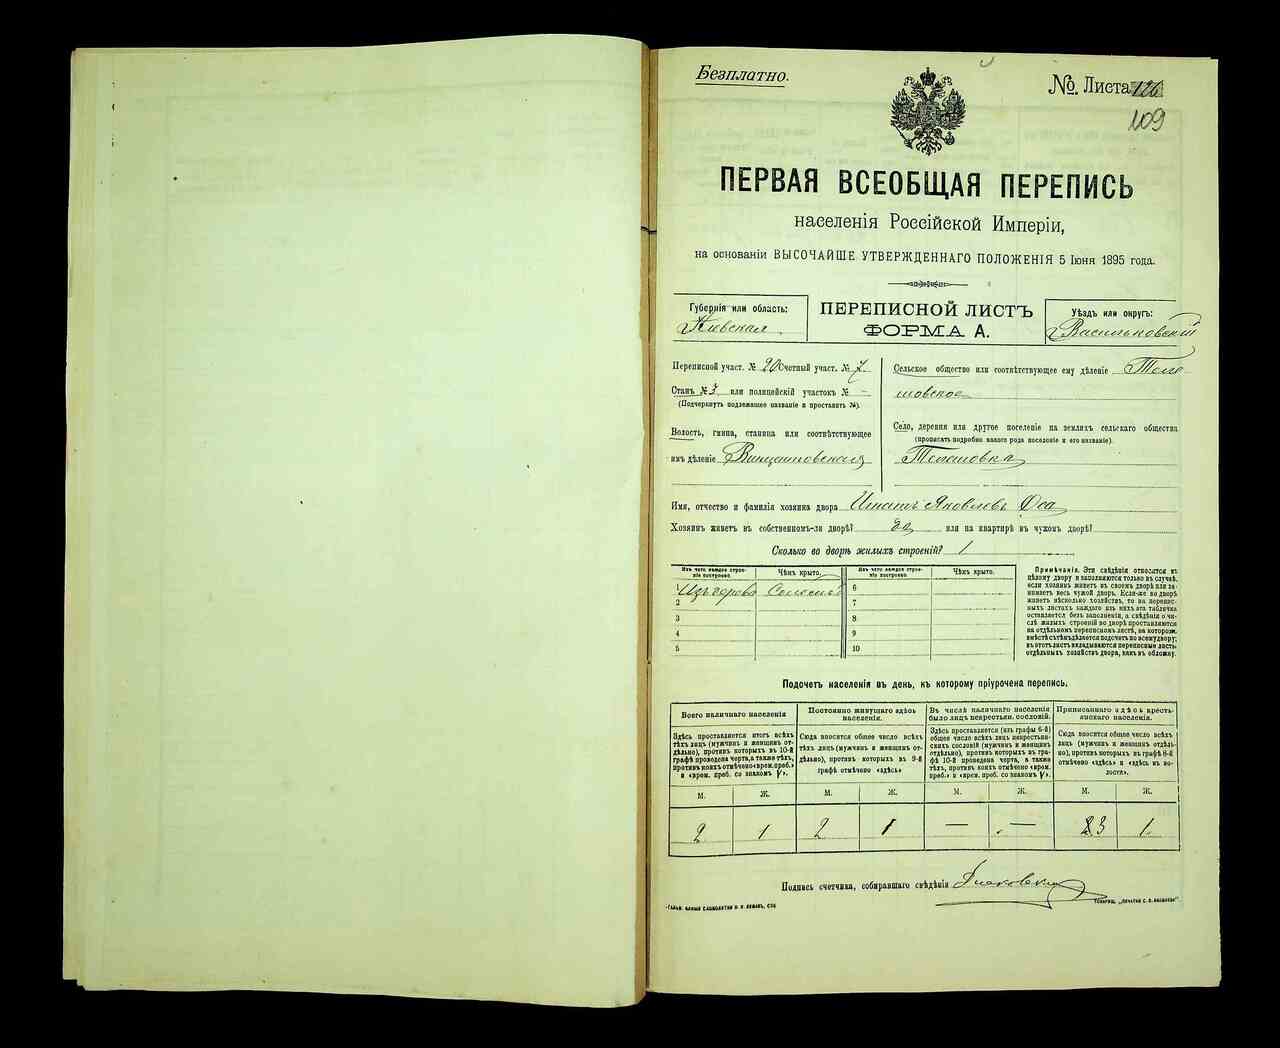 Безплатно.
№ Листа 126
109
ПЕРВАЯ ВСЕОБЩАЯ ПЕРЕПИСЬ
населенія Россійской Имперіи,
на основаніи ВЫСОЧАЙШЕ УТВЕРЖДЕННАГО ПОЛОЖЕНІЯ 5 Іюня 1895 года.
Губернія или область:
Кіевская
ПЕРЕПИСНОЙ ЛИСТЪ
ФОРМА А.
Уѣздъ или округъ:
Васильковскій
Переписной участ. № 20 Счетный участ. № 7
Станъ № 3 или полицейскій участокъ № –
(Подчеркнуть подлежащее названіе и проставить №).
Волость, гмина, станица или соотвѣтствующее
имъ дѣленіе Винцентовская
Сельское общество или соотвѣтствующее ему дѣленіе Теле-
шовское
Село, деревня или другое поселеніе на земляхъ сельскаго общества
(прописать подробно какого рода поселеніе и его названіе).
Телешовка
Имя, отчество и фамилія хозяина двора Игнатъ Яковлевъ Оса
Хозяинъ живетъ въ собственномъ-ли дворѣ? да или на квартирѣ въ чужомъ дворѣ?
Сколько во дворѣ жилыхъ строеній? 1
Изъ чего каждое строеніе построено. Чѣмъ крыто. Изъ чего каждое строеніе построено. Чѣмъ крыто.
Изъ дерева Соломой 6
2 7
3 8
4 9
5 10
Примѣчанія. Эти свѣдѣнія относятся къ
цѣлому двору и заполняются только въ случаѣ,
если хозяинъ живетъ въ своемъ дворѣ или за-
нимаетъ весь чужой дворъ. Если-же во дворѣ
живетъ нѣсколько хозяйствъ, то на перепис-
ныхъ листахъ каждаго изъ нихъ эта табличка
оставляется безъ заполненія, а свѣдѣнія о чи-
слѣ жилыхъ строеній во дворѣ проставляются
на отдѣльномъ переписномъ листѣ, на которомъ
вмѣстѣ съ тѣмъ дѣлается подсчетъ по всему двору;
въ этотъ листъ вкладываются переписные листы
отдѣльныхъ хозяйствъ двора, какъ въ обложку.
Подсчетъ населенія въ день, къ которому пріурочена перепись.
Всего наличнаго населенія
Здѣсь проставляется итогъ всѣхъ
тѣхъ лицъ (мужчинъ и женщинъ от-
дѣльно), противъ которыхъ въ 10-й
графѣ проведена черта, а также тѣхъ,
противъ коихъ отмѣчено «врем. преб.»
и «врем. преб. со знакомъ V».
Постоянно живущаго здѣсь
населенія.
Сюда вносится общее число всѣхъ
тѣхъ лицъ (мужчинъ и женщинъ от-
дѣльно), противъ которыхъ въ 9-й
графѣ отмѣчено «здѣсь»
Въ числѣ наличнаго населенія
было лицъ некрестьян. сословій.
Здѣсь проставляется (изъ графы 6-й)
общее число всѣхъ лицъ некрестьян-
скихъ сословій (мужчинъ и женщинъ
отдѣльно), противъ которыхъ въ гра-
фѣ 10-й проведена черта, а также
тѣхъ, противъ коихъ отмѣчено «врем.
преб.» и «врем. преб. со знакомъ V».
Приписаннаго здѣсь кресть-
янскаго населенія.
Сюда вносится общее число всѣхъ
лицъ (мужчинъ и женщинъ отдѣль-
но), противъ которыхъ въ графѣ 8-й
отмѣчено «здѣсь» и «здѣсь въ во-
лости».
М. Ж. М. Ж. М. Ж. М. Ж.
2 1 2 1 — — 3 1
Подпись счетчика, собиравшаго свѣдѣнія